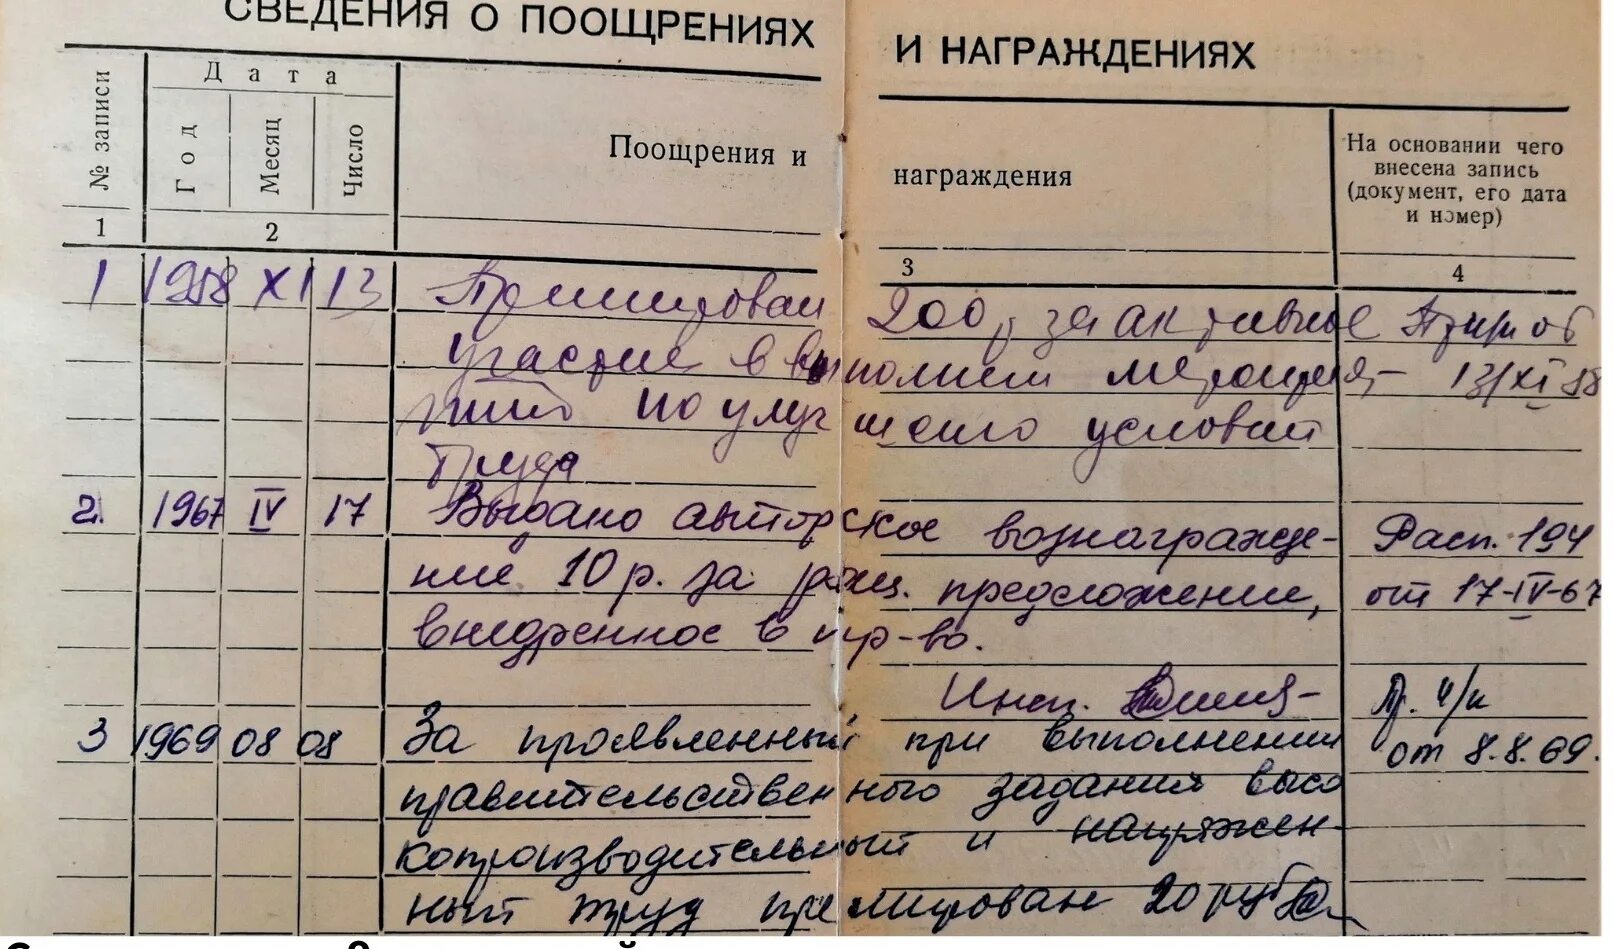 СВЕДЕНИЯ О ПООЩРЕНИЯХ И НАГРАЖДЕНИЯХ
№ записи
Дата
Год
Месяц
Число
Поощрения и награждения
На основании чего
внесена запись
(документ, его дата
и номер)
1 2 3 4
1 1958 XI 13 Премирован 200р за активное
участие в выполнен мероприя-
тий по улучшению условий
труда
13/XI 58
2. 1967 IV 17 Выдано авторское вознагражде- Расп. 194
ние 10 р. за рац. предложение, от 17-IV-67
внедренное в пр-во.
Инсп.
Пр. 4/к
3 1969 08 08 За проявленный при выполнении от 8.8.69.
правительственного задания высо
копроизводительный и напряжен-
ный труд премирован 20 руб